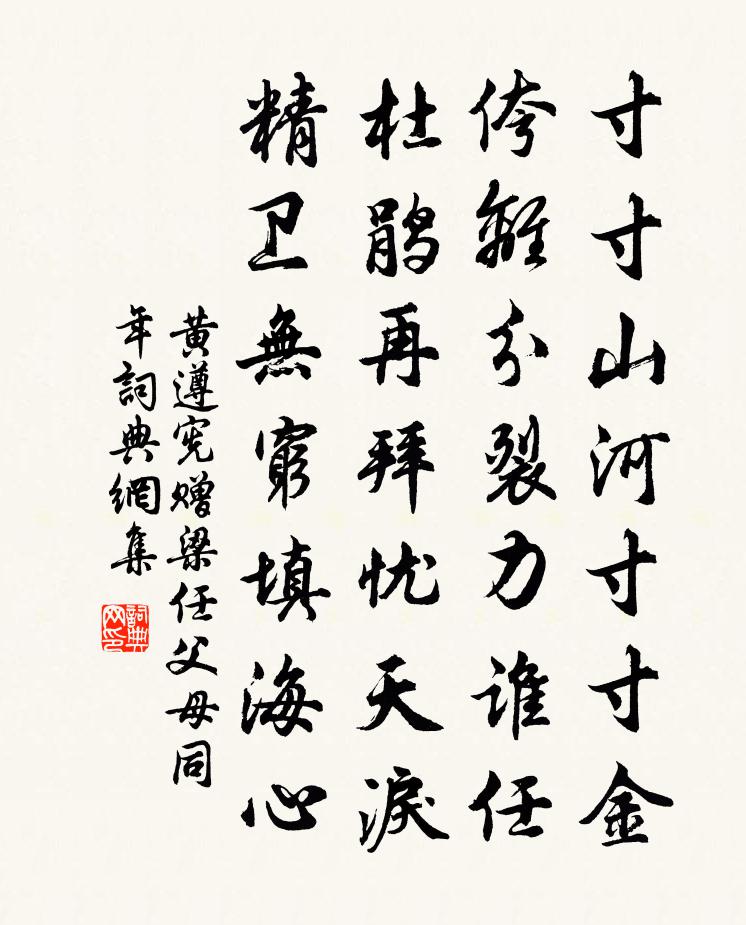 寸寸山河寸寸金
侉離分裂力谁任
杜鹃再拜忧天淚
精卫無窮填海心
黄遵宪赠梁任父母同
年詞典網集
詞典网印